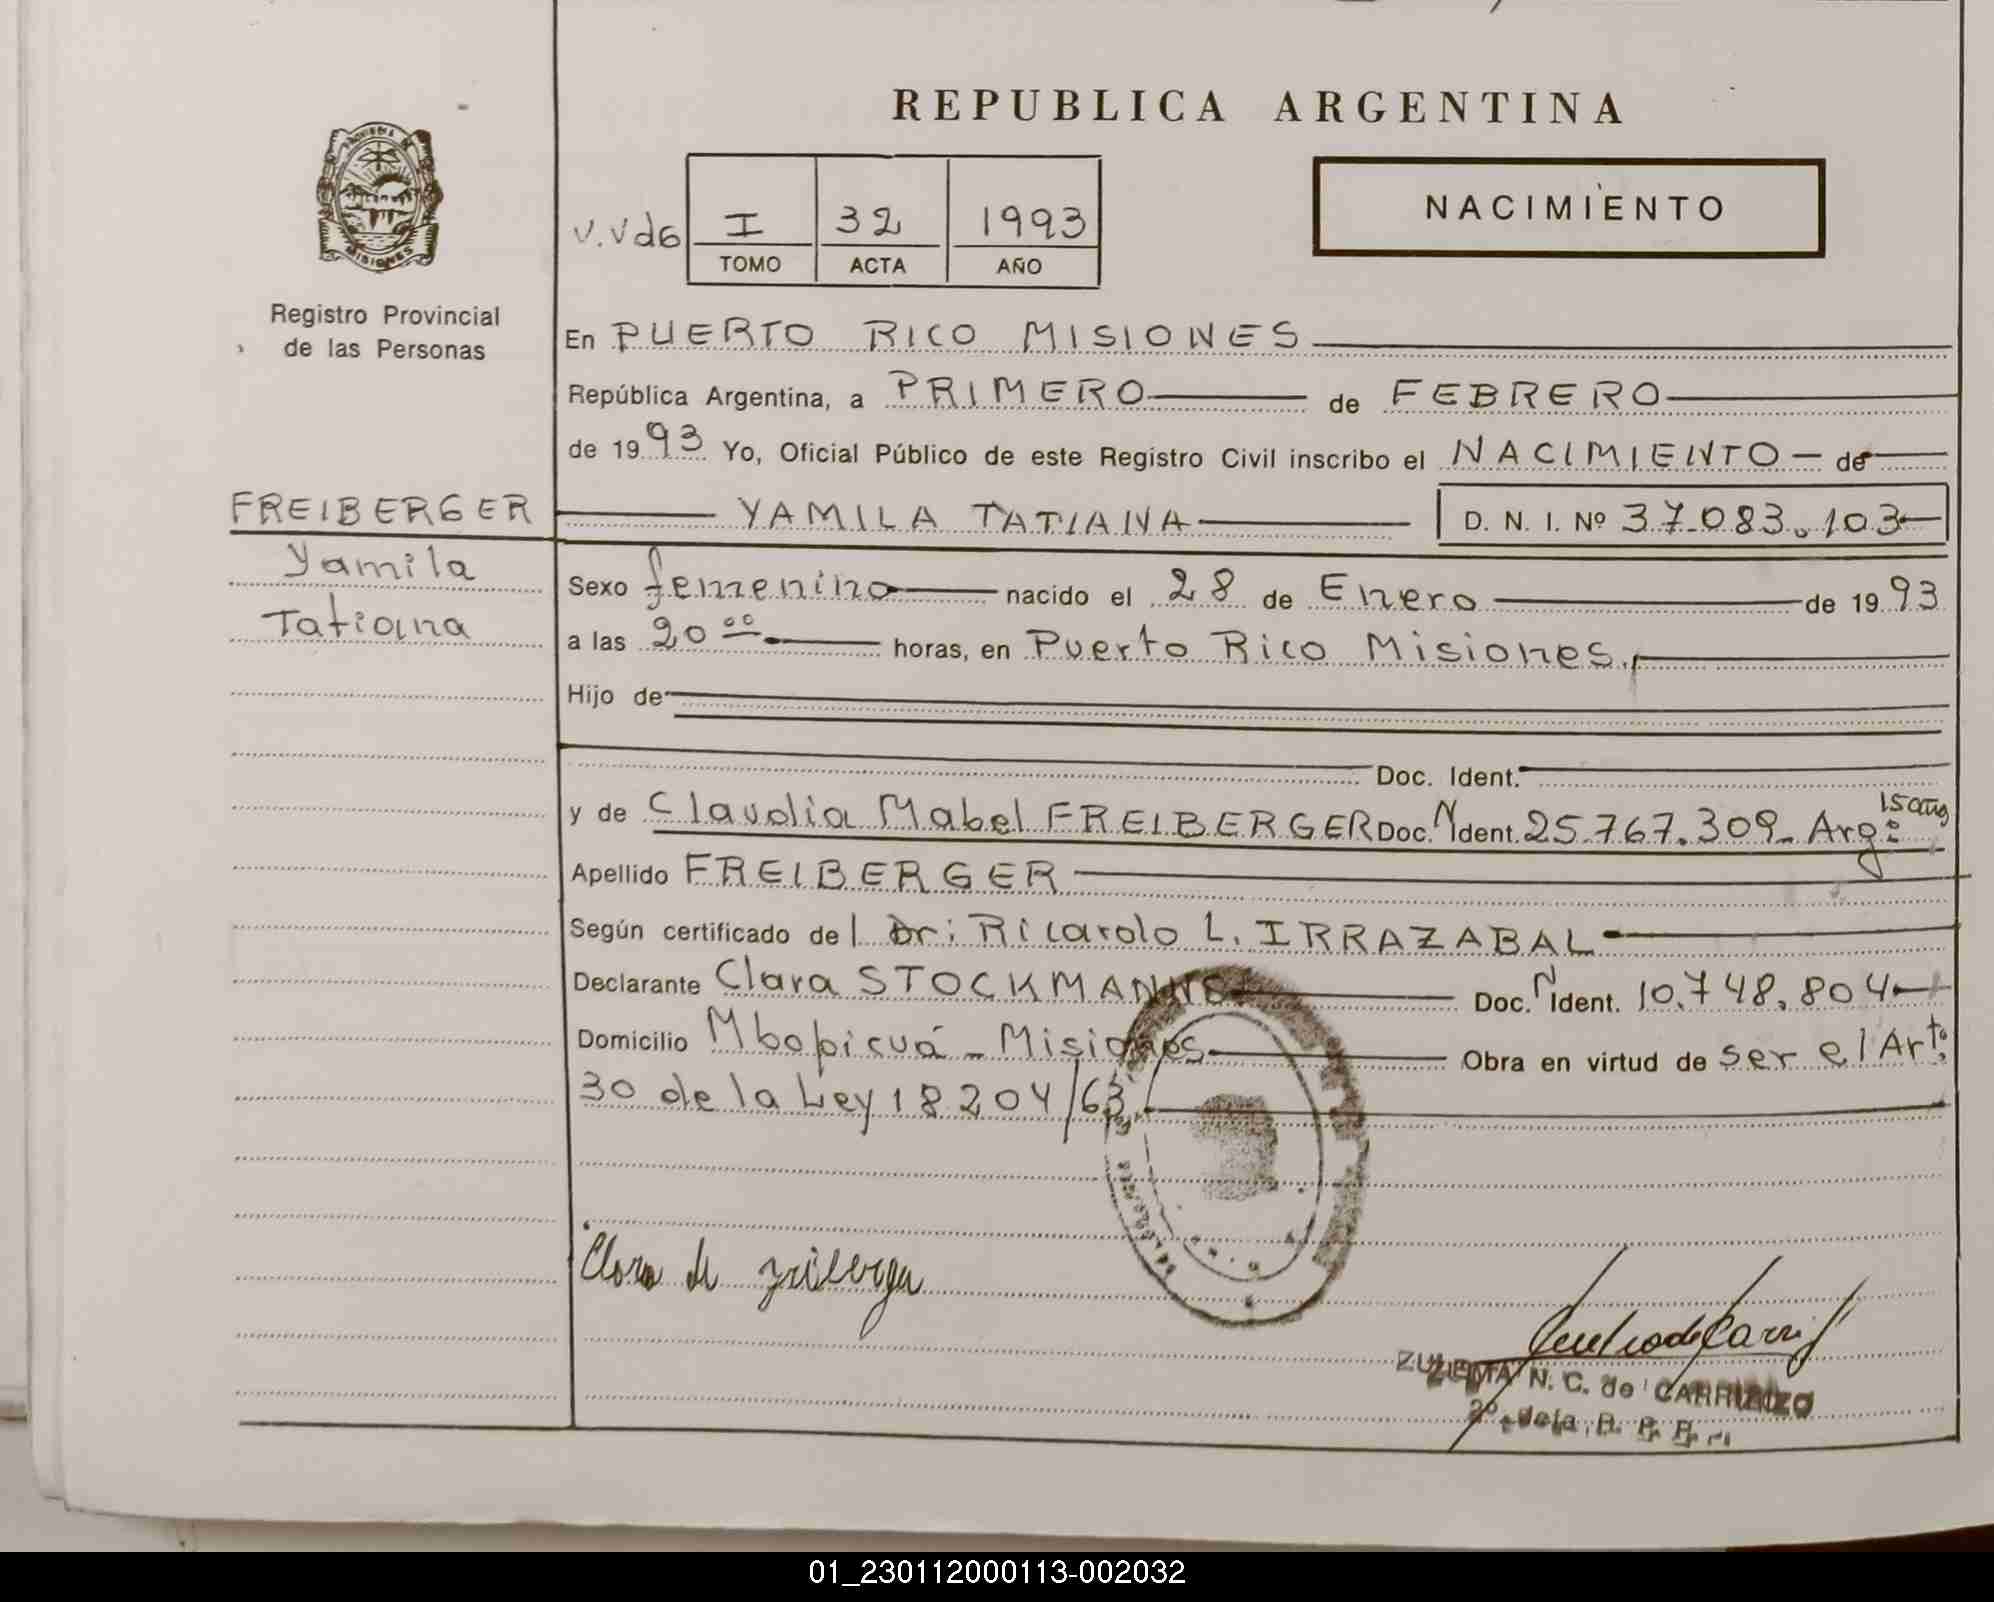 REPUBLICA ARGENTINA
NACIMIENTO
V.Vd6 I 32 1993
TOMO ACTA AÑO
PROVINCIA DE
MISIONES
Registro Provincial
de las Personas
En PUERTO RICO MISIONES
República Argentina, a PRIMERO de FEBRERO
de 1993 Yo, Oficial Público de este Registro Civil inscribo el NACIMIENTO de
FREIBERGER YAMILA TATIANA D. N. I. Nº 37.083.103
Yamila
Tatiana
Sexo femenino nacido el 28 de Enero de 1993
a las 20 00 horas, en Puerto Rico Misiones.
Hijo de
Doc. Ident.
y de Claudia Mabel FREIBERGER Doc. N Ident. 25.767.309 - Arg: 15 años
Apellido FREIBERGER
Según certificado del Dr: Ricardo L. IRRAZABAL
Declarante Clara STOCKMANNS Doc. N Ident. 10.748.804
Domicilio Mbopicuá - Misiones Obra en virtud de ser el Arto.
30 de la Ley 18204/63.
Clara de Freiberger
ZULEMA N. C. de CARRIZO